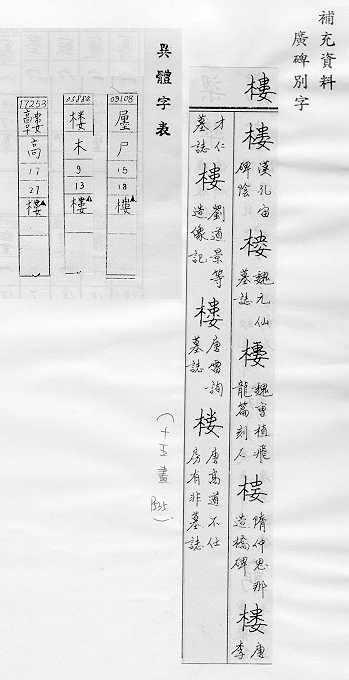 補充資料
廣碑別字
樓
樓 漢孔宙碑陰 樓 魏元仙墓誌 樓 魏曹植飛龍篇刻石 樓 隋仲思那造橋碑 樓 唐李
才仁墓誌 樓 劉道景等造像記 樓 唐雷詢墓誌 楼 唐高道不仕房有非墓誌
(十五畫 B35)
異體字表
09108
尸
15
18
樓
05888
楼
木
9
13
樓
17253
高
17
27
樓